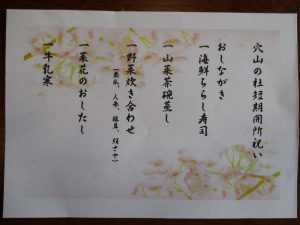 穴山の杜短期開所祝い
おしながき
一海鮮ちらし寿司
一山菜茶碗蒸し
一野菜炊き合わせ
一菜花のおしたし
一牛乳寒